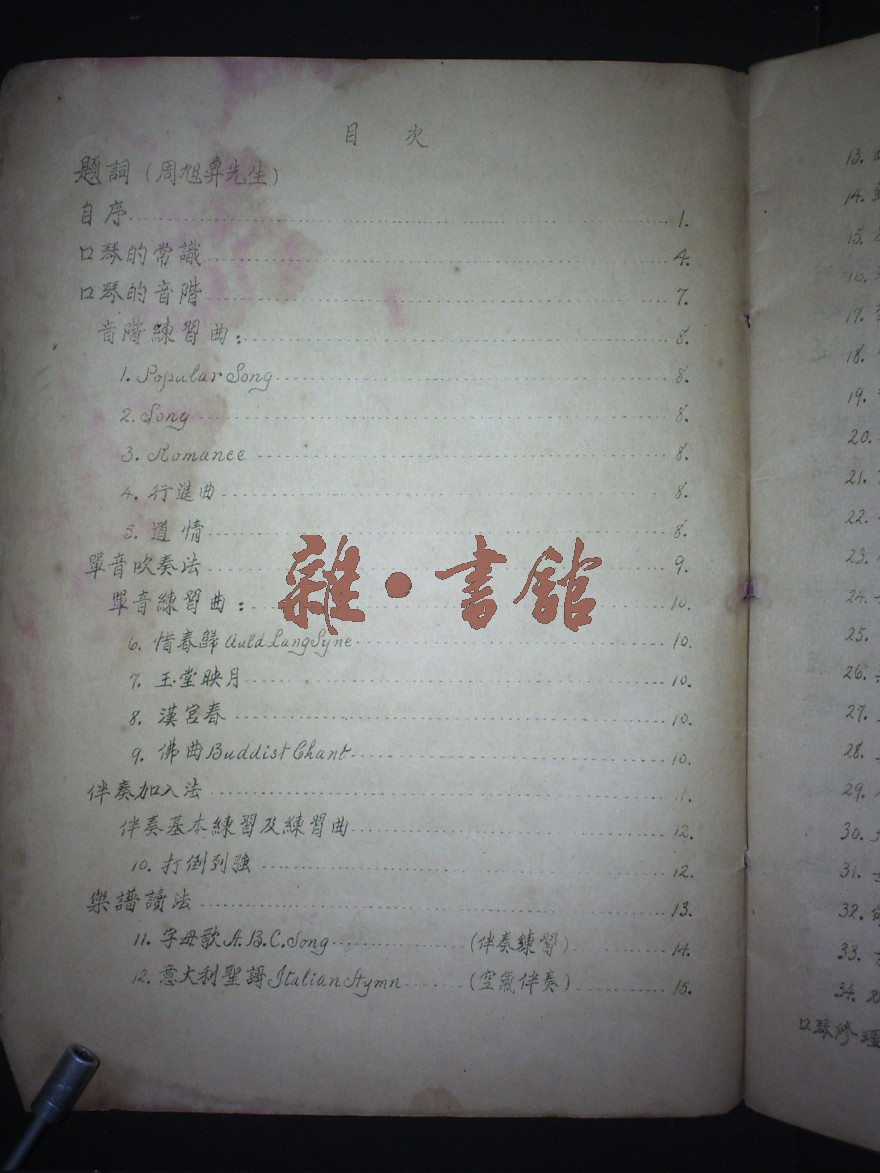 目 次
題詞(周旭昇先生)
自序 1.
口琴的常識 4.
口琴的音階 7.
音階練習曲: 8.
1. Popular Song 8.
2. Song 8.
3. Romance 8.
4. 行進曲 8.
5. 道情 8.
單音吹奏法 9.
單音練習曲: 10.
6. 惜春歸 Auld Lang Syne 10.
7. 玉堂映月 10.
8. 漢宮春 10.
9. 佛曲 Buddist Chant 10.
伴奏加入法
伴奏基本練習及練習曲 12.
10. 打倒列強 12.
樂譜讀法 13.
11. 字母歌 A.B.C. Song (伴奏練習) 14.
12. 意大利聖詩 Italian Hymn (空氣伴奏) 15.
雜·書館
13.
14.
15.
16.
17.
18.
19.
20.
21.
22.
23.
24.
25.
26.
27.
28.
29.
30.
31.
32.
33.
34.
口琴修理